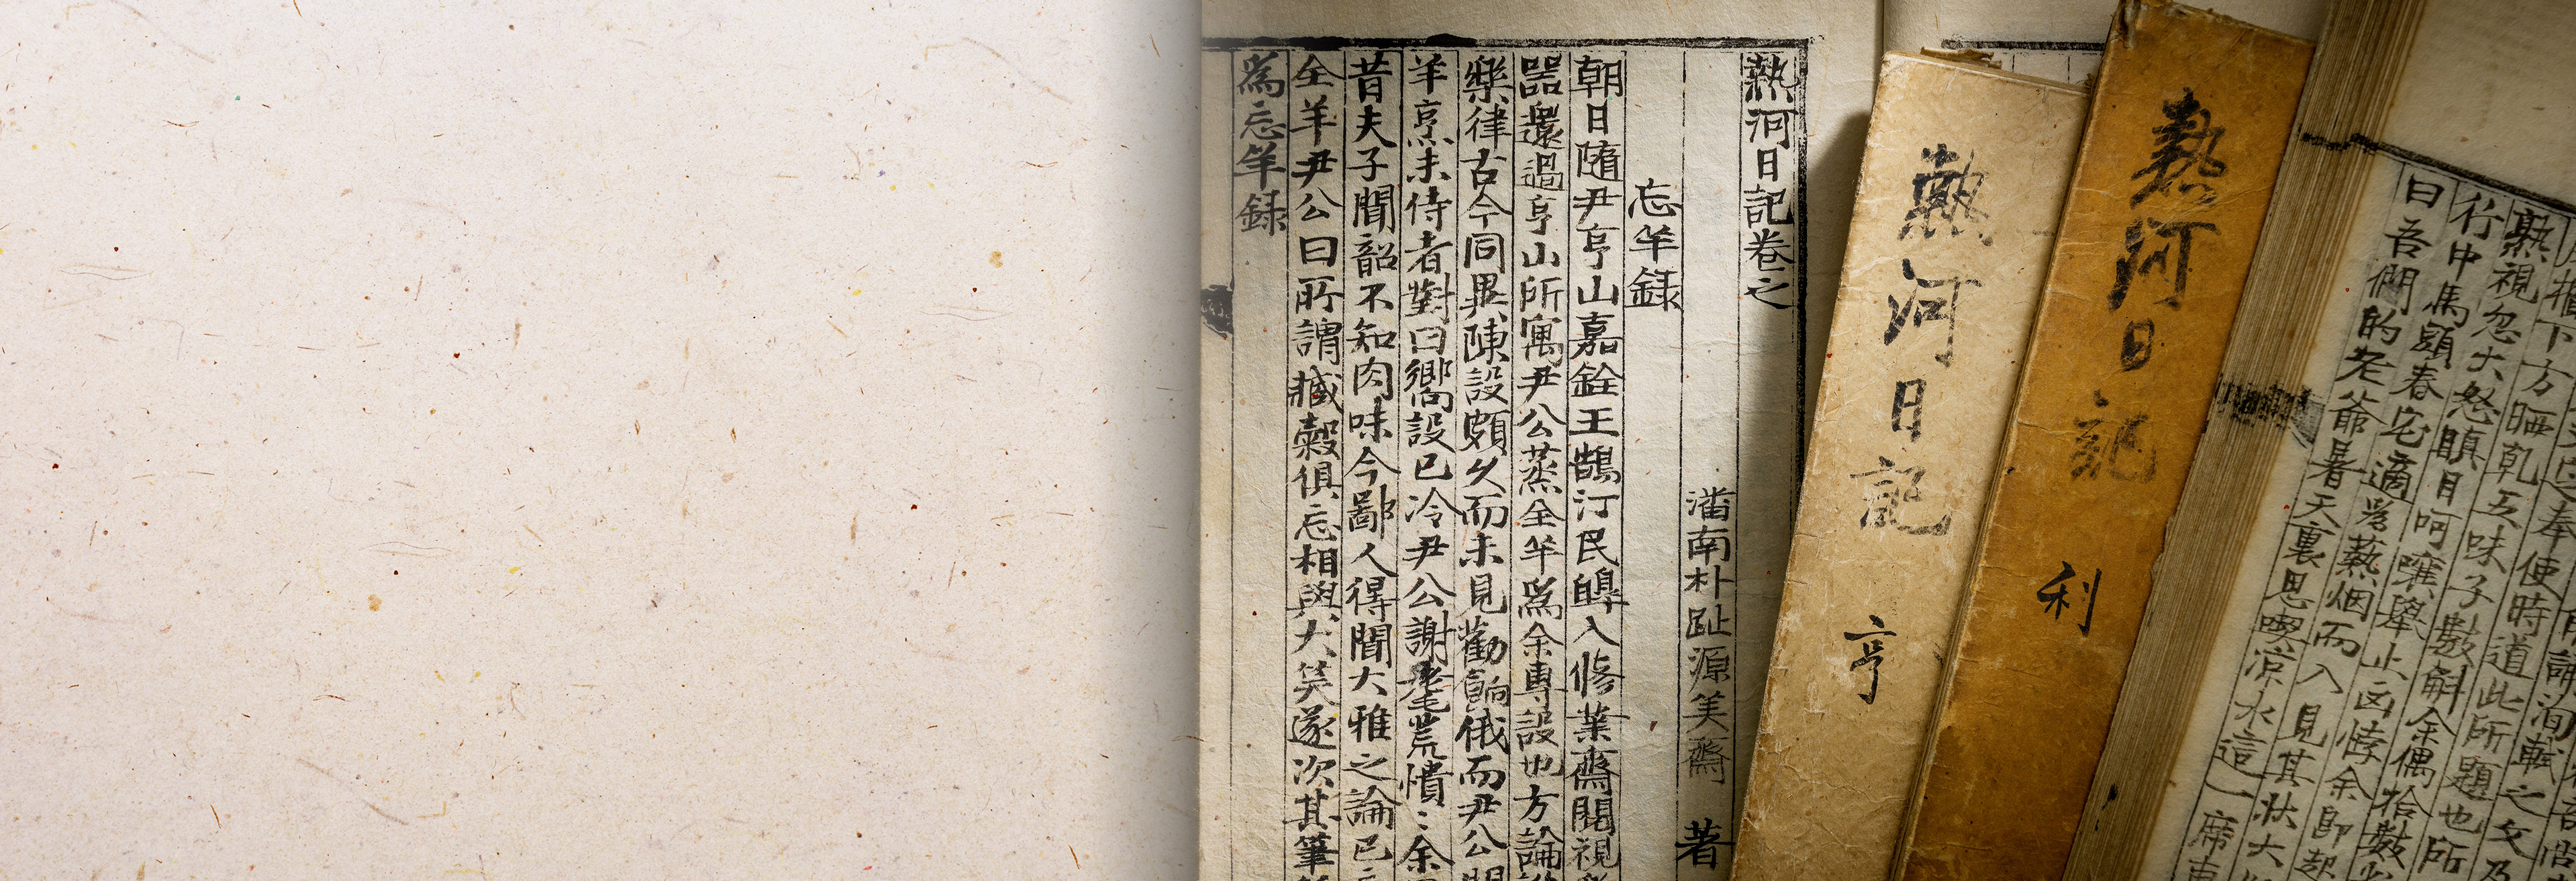 熱河日記卷之
潘南朴趾源美齋 著
忘羊録
朝日随尹亨山嘉銓王鵠汀民皥入修業齋閱視
器還過亨山所寓尹公蒸全羊爲余專設也方論
樂律古今同異陳設頗久而未見勸餉俄而尹公問
羊烹未侍者對曰嚮設已冷尹公謝耄荒憒〻余
昔夫子聞韶不知肉味今鄙人得聞大雅之論已
全羊尹公曰所謂臧穀俱忘相與大笑遂次其筆
爲忘羊録
熱河日記 亨
熱河日記 利
下方晒乾五味子數斛余偶拾數
熱視忽大怒瞋目呵
行中馬頭春宅適爲爇烟而入見其狀大
曰吾們的老爺暑天裏思喫凉水這一席